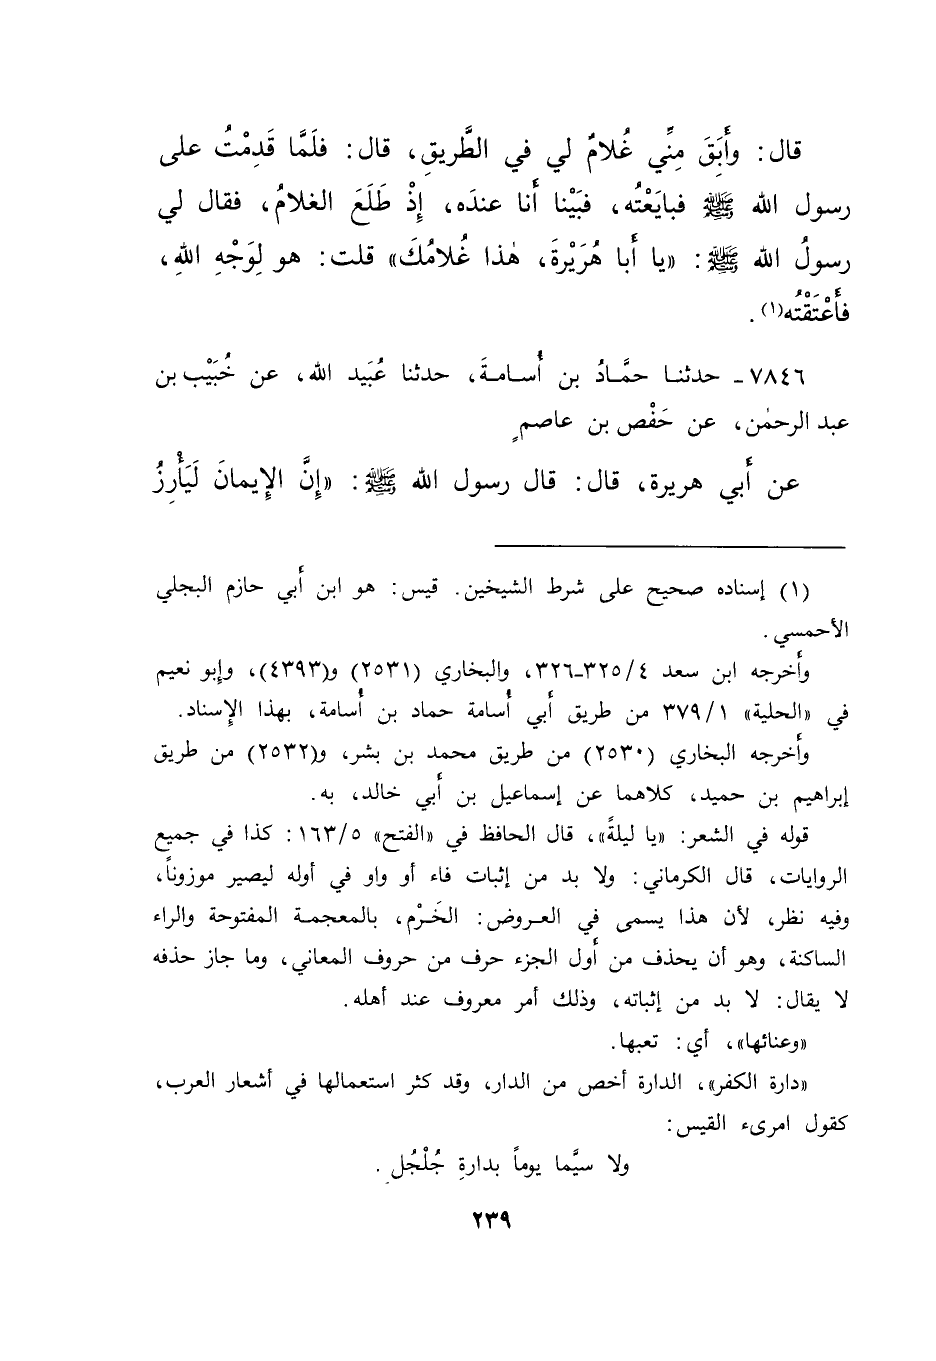 قال: وأَبَقَ مِنِّي غُلامٌ لي في الطَّريقِ، قال: فلَمَّا قَدِمْتُ على
رسول الله ﷺ فبايَعْتُه، فبَيْنا أَنا عندَه، إِذْ طَلَعَ الغلامُ، فقال لي
رسولُ الله ﷺ: «يا أَبا هُرَيْرةَ، هٰذا غُلامُكَ» قلت: هو لِوَجْهِ اللهِ،
فأَعْتَقْتُه(١).
٧٨٤٦ـ حدثنا حمَّادُ بن أُسامةَ، حدثنا عُبَيد الله، عن خُبَيْب بن
عبد الرحمٰن، عن حَفْص بن عاصمٍ
عن أَبي هريرة، قال: قال رسول الله ﷺ: «إِنَّ الإِيمانَ لَيَأْرِزُ
(١) إسناده صحيح على شرط الشيخين. قيس: هو ابن أَبي حازم البجلي
الأحمسي.
وأَخرجه ابن سعد ٣٢٥/٤ـ٣٢٦، والبخاري (٢٥٣١) و(٤٣٩٣)، وإبو نعيم
في «الحلية» ٣٧٩/١ من طريق أَبي أُسامة حماد بن أُسامة، بهذا الإِسناد.
وأَخرجه البخاري (٢٥٣٠) من طريق محمد بن بشر، و(٢٥٣٢) من طريق
إبراهيم بن حميد، كلاهما عن إسماعيل بن أَبي خالد، به.
قوله في الشعر: «يا ليلةً»، قال الحافظ في «الفتح» ١٦٣/٥: كذا في جميع
الروايات، قال الكرماني: ولا بد من إثبات فاء أو واو في أوله ليصير موزوناً،
وفيه نظر، لأن هذا يسمى في العروض: الخَرْم، بالمعجمة المفتوحة والراء
الساكنة، وهو أن يحذف من أَول الجزء حرف من حروف المعاني، وما جاز حذفه
لا يقال: لا بد من إثباته، وذلك أمر معروف عند أهله.
«وعنائها»، أي: تعبها.
«دارة الكفر»، الدارة أخص من الدار، وقد كثر استعمالها في أشعار العرب،
كقول امرىء القيس:
ولا سيَّما يوماً بدارةِ جُلْجُلِ.
٢٣٩